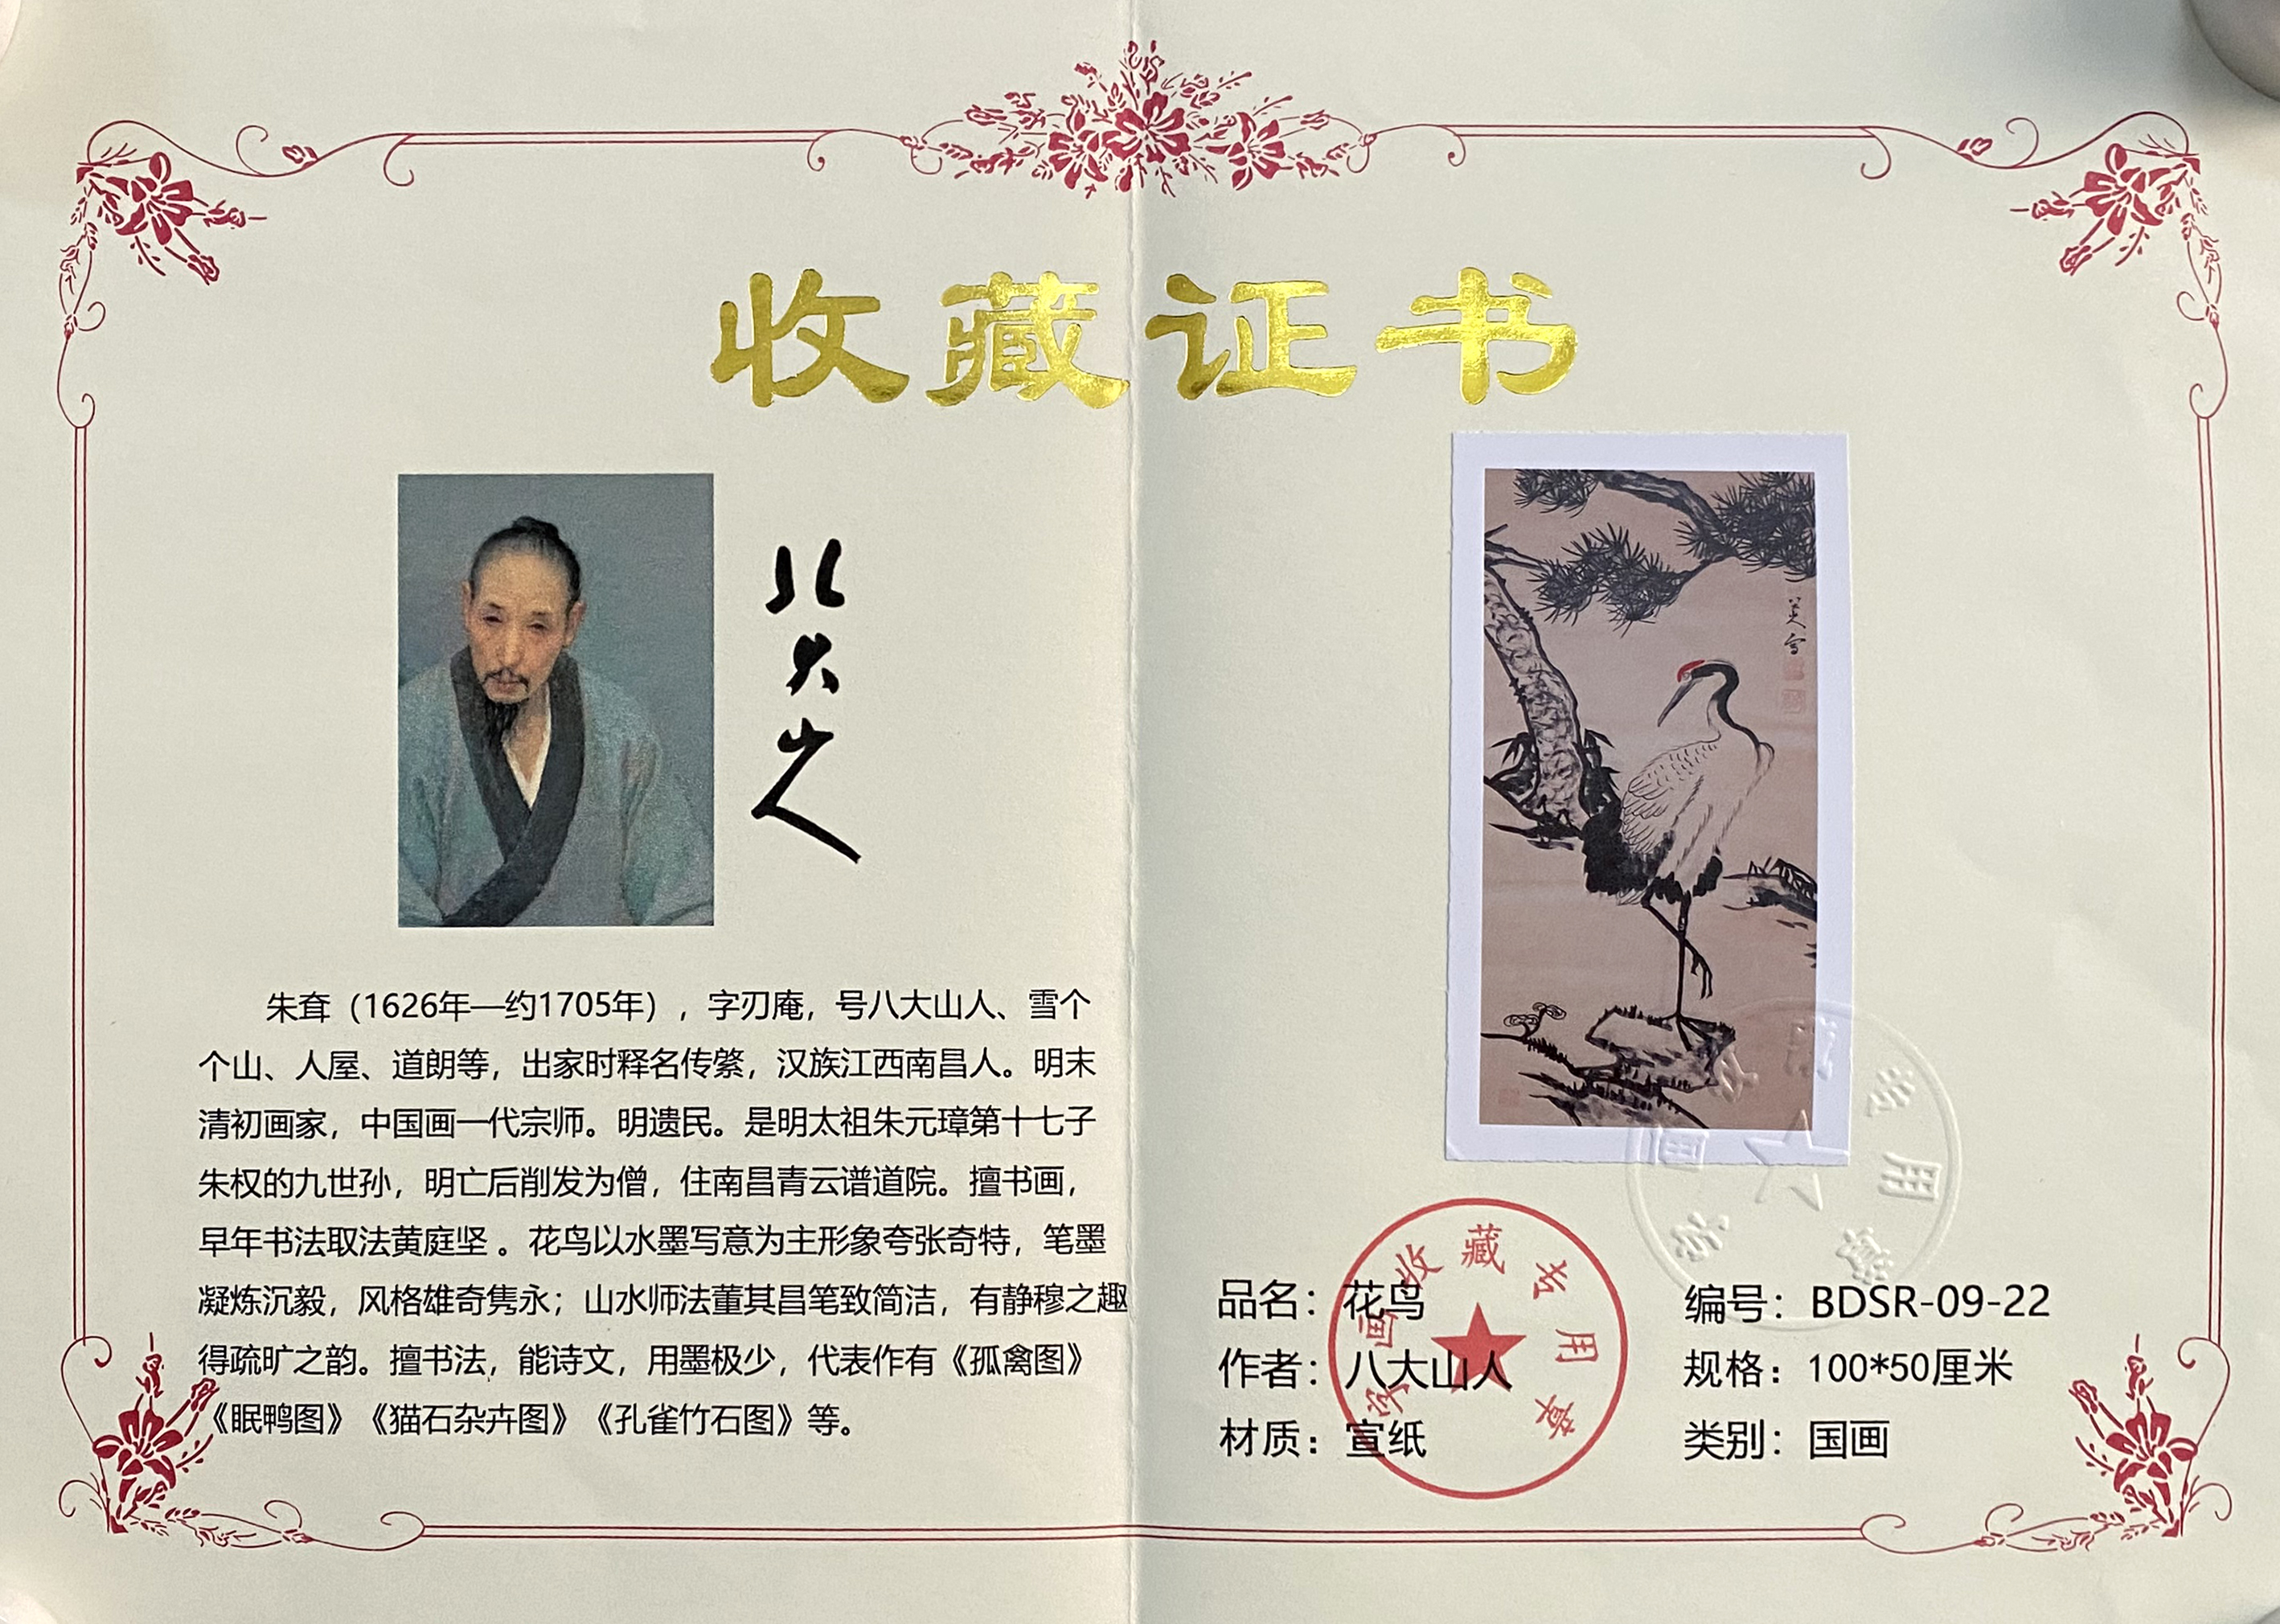 收藏证书
八大山人
朱耷（1626年—约1705年），字刃庵，号八大山人、雪个
个山、人屋、道朗等，出家时释名传綮，汉族江西南昌人。明末
清初画家，中国画一代宗师。明遗民。是明太祖朱元璋第十七子
朱权的九世孙，明亡后削发为僧，住南昌青云谱道院。擅书画，
早年书法取法黄庭坚 。花鸟以水墨写意为主形象夸张奇特，笔墨
凝炼沉毅，风格雄奇隽永；山水师法董其昌笔致简洁，有静穆之趣
得疏旷之韵。擅书法，能诗文，用墨极少，代表作有《孤禽图》
《眠鸭图》《猫石杂卉图》《孔雀竹石图》等。
品名：花鸟
作者：八大山人
材质：宣纸
编号：BDSR-09-22
规格：100*50厘米
类别：国画
字画收藏专用章